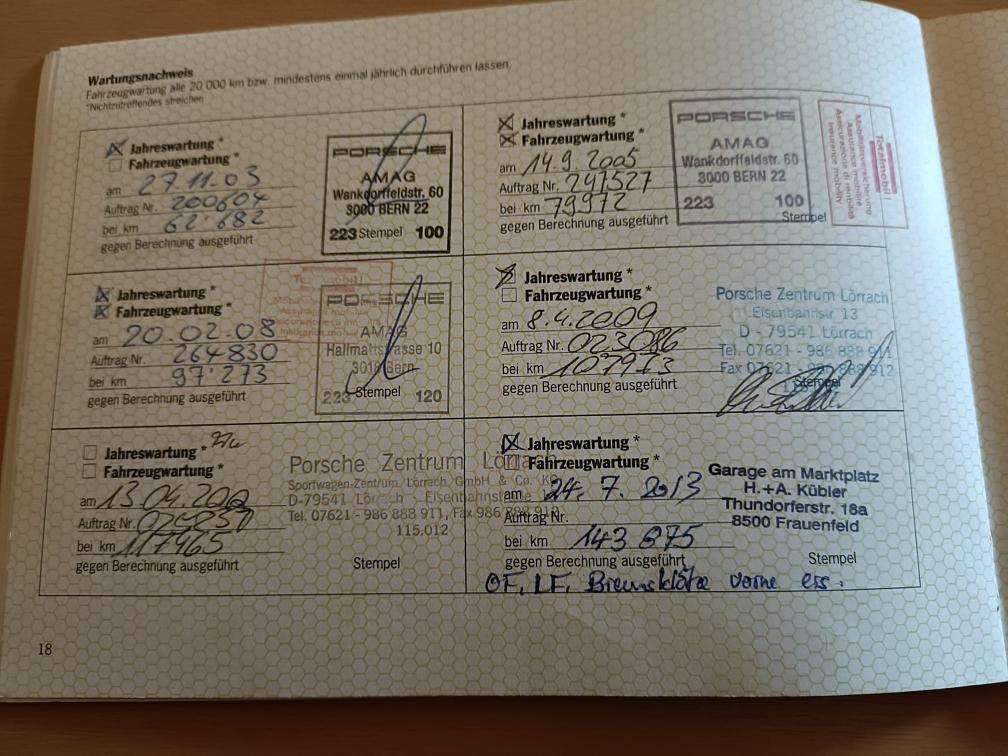 Wartungsnachweis
Fahrzeugwartung alle 20 000 km bzw. mindestens einmal jährlich durchführen lassen.
*Nichtzutreffendes streichen
Jahreswartung *
Fahrzeugwartung *
am 27.11.03
Auftrag Nr. 200604
bei km 62'682
gegen Berechnung ausgeführt
PORSCHE
AMAG
Wankdorffeldstr. 60
3000 BERN 22
223 Stempel 100
Jahreswartung *
Fahrzeugwartung *
am 14.9.2005
Auftrag Nr. 241527
bei km 79972
gegen Berechnung ausgeführt
PORSCHE
AMAG
Wankdorffeldstr. 60
3000 BERN 22
223 100
Stempel
Totalmobil!
Mobilitätsversicherung
Assurance mobilité
Assicurazione di mobilità
Insurance mobility
Jahreswartung *
Fahrzeugwartung *
am 20.02.08
Auftrag Nr. 264830
bei km 97'273
gegen Berechnung ausgeführt
PORSCHE
AMAG
3018 Bern
223 Stempel 120
Jahreswartung *
Fahrzeugwartung *
am 8.4.2009
Auftrag Nr. 023086
bei km 107973
gegen Berechnung ausgeführt
Porsche Zentrum Lörrach
Eisenbahnstr. 13
D - 79541 Lörrach
Tel. 07621 - 986 888 911
Fax 07621 - 986 888 912
Stempel
Jahreswartung *
Fahrzeugwartung *
am 13.04.
Auftrag Nr.
bei km 117465
gegen Berechnung ausgeführt
Porsche Zentrum Lörrach
Sportwagen-Zentrum Lörrach GmbH & Co. KG
D-79541 Lörrach Eisenbahnstraße
Tel. 07621 - 986 888 911, Fax 986 888 912
115.012
Stempel
Jahreswartung *
Fahrzeugwartung *
am 24. 7. 2013
Auftrag Nr.
bei km 143 675
gegen Berechnung ausgeführt
Garage am Marktplatz
H.+A. Kübler
Thundorferstr. 16a
8500 Frauenfeld
Stempel
OF, LF, Bremsklötze vorne ers.
18